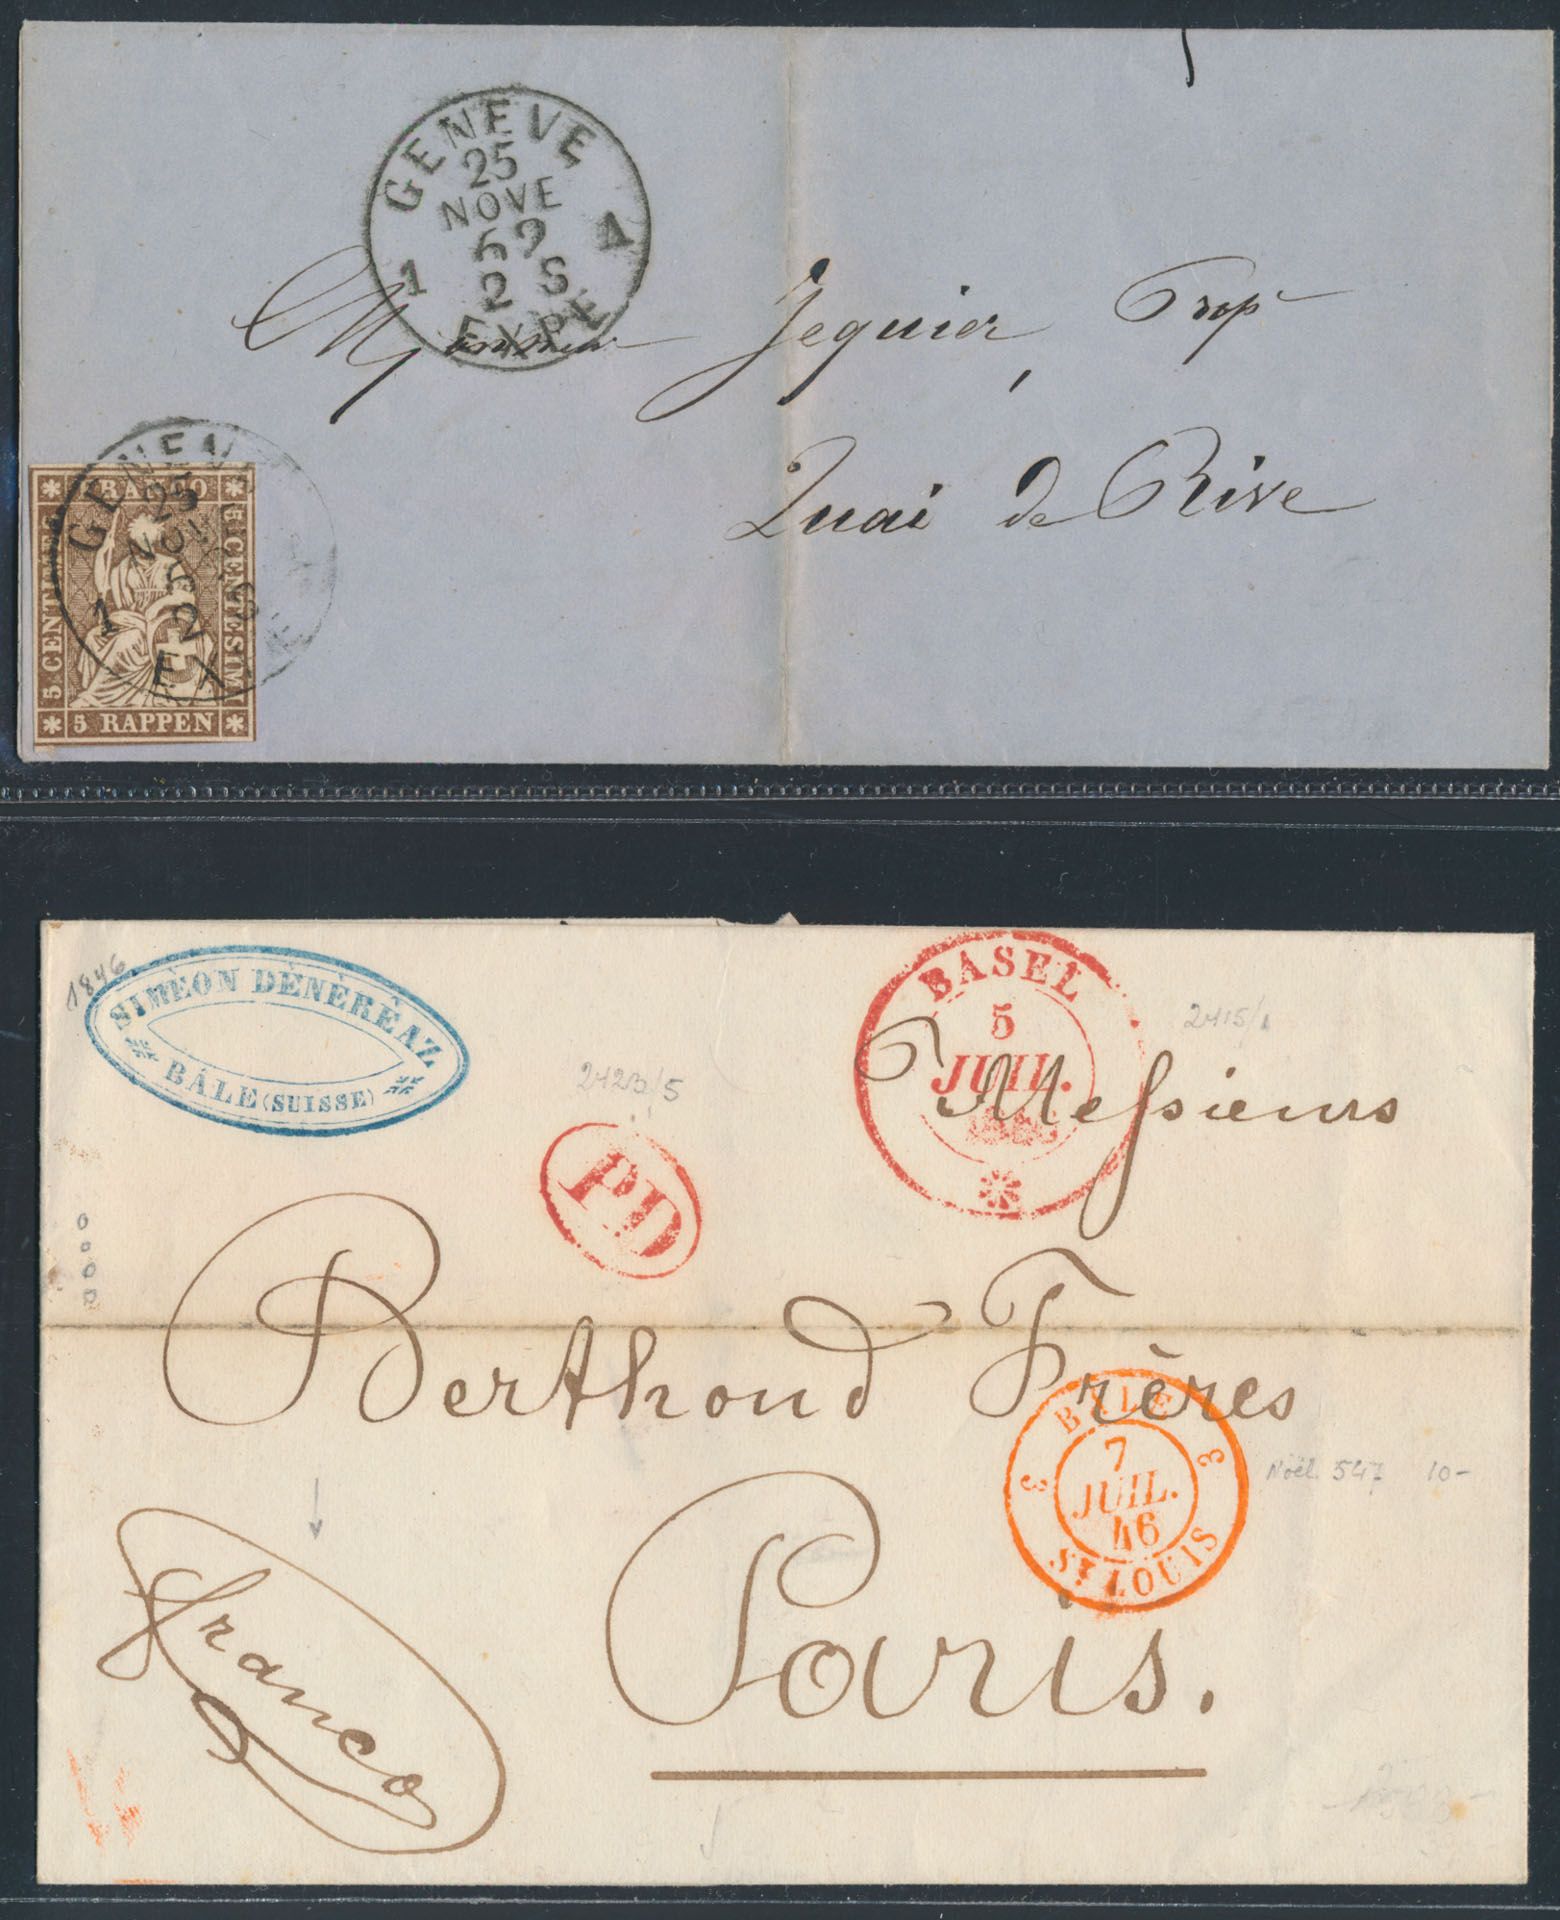 GENEVE
25
NOVE
1 A
2 S
EXPE
Monsieur Jequier Prop
Quai de Rive
GENEV
25
NOV
1
2
EX
FRANCO
5 CENTIMES
5 CENTESIMI
5 RAPPEN
1846
SIMÉON DÉNÉRÉAZ
BÂLE (SUISSE)
2423/5
P.D
BASEL
5
JUIL.
2415/1
Messieurs
Berthoud Frères
Paris.
BÂLE
3 3
7
JUIL.
46
ST LOUIS
Noël 547 10-
franco